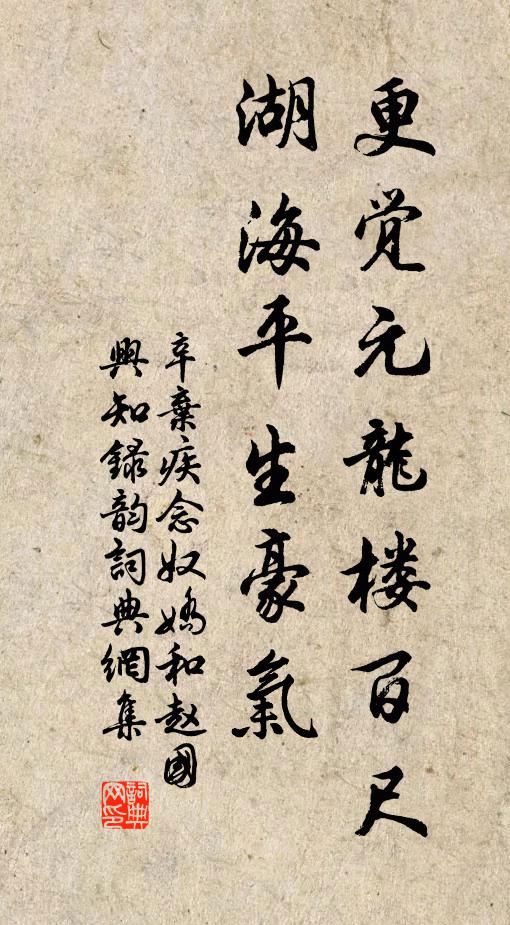 更觉元龍楼百尺
湖海平生豪氣
辛棄疾念奴嬌和赵國
興知録韵詞典網集
詞典网印